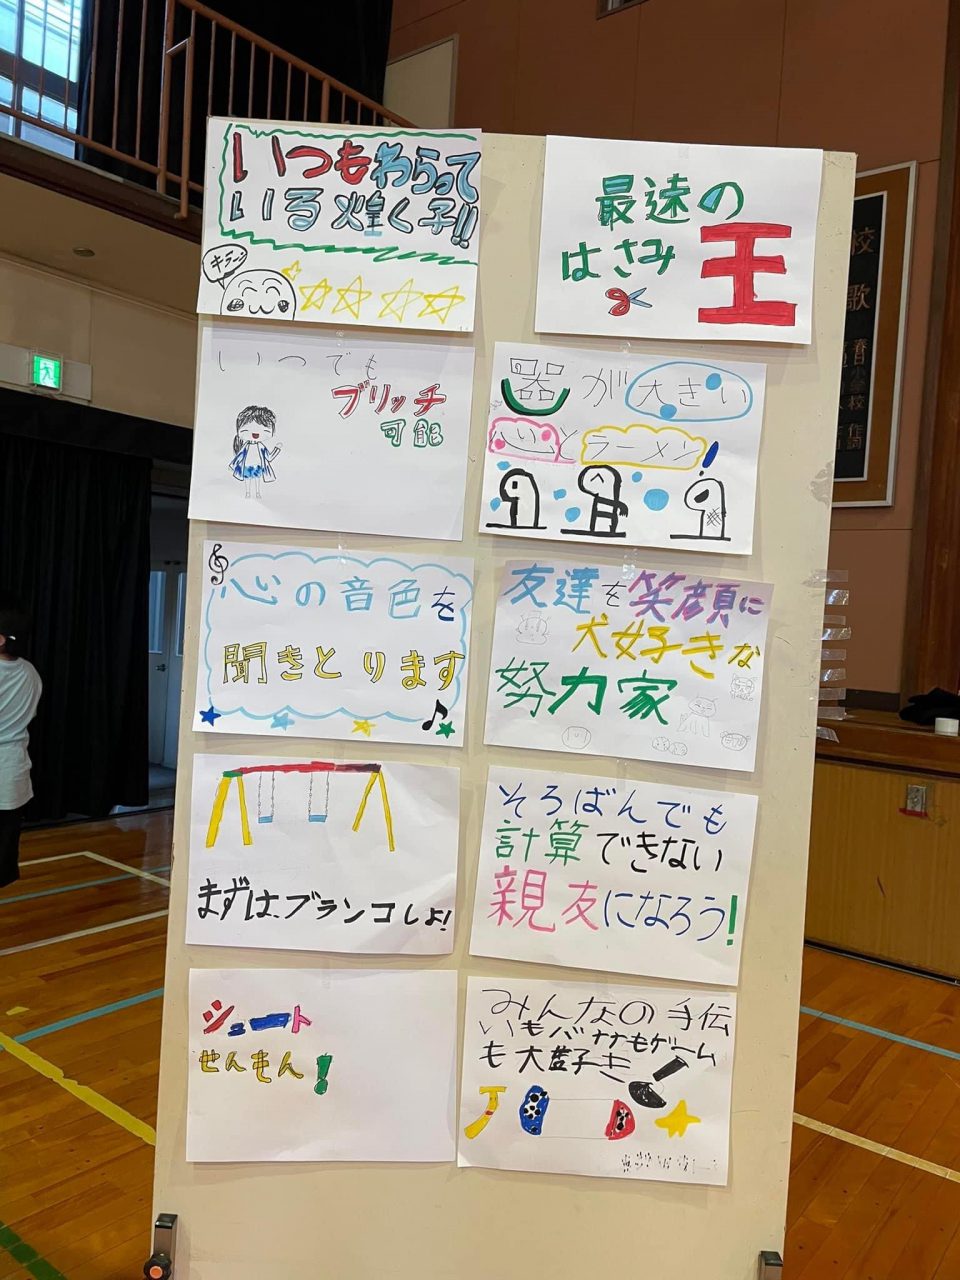 いつもわらって
いる煌く子!!
キラーン
最遠の
はさみ
王
いつでも
ブリッチ
可能
器が大きい
心とラーメン!
心の音色を
聞きとります
友達を笑顔に
犬好きな
努力家
まずは、ブランコしよ!
そろばんでも
計算できない
親友になろう!
シュート
せんもん!
みんなの手伝
いもバナナもゲーム
も大好き
校歌